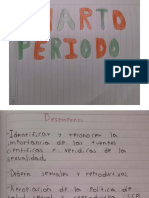 CUARTO
PERIODO
Desempeños
- Identificar y reconocer la
importancia de las fuentes
cientificas e juridicas de la
sexualidad.
- Deberes sexuales y reproductivos
- Apropiación de la Politica de